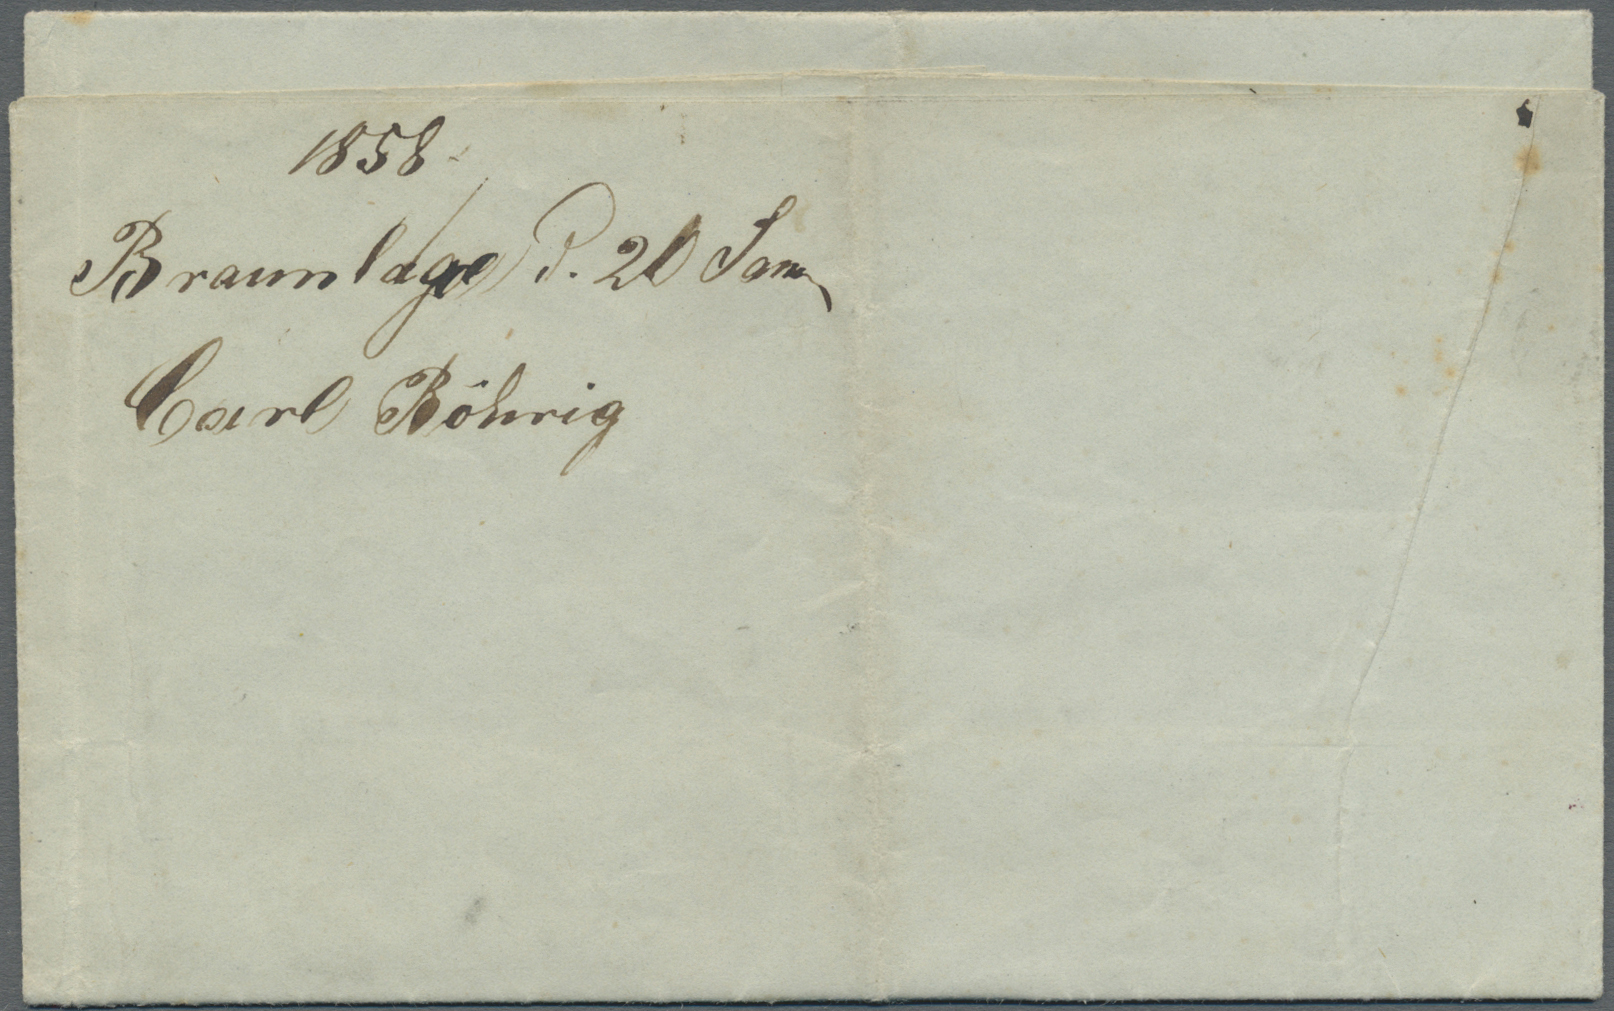 1858.
Braunlage d. 20 Jan
Carl Röhrig